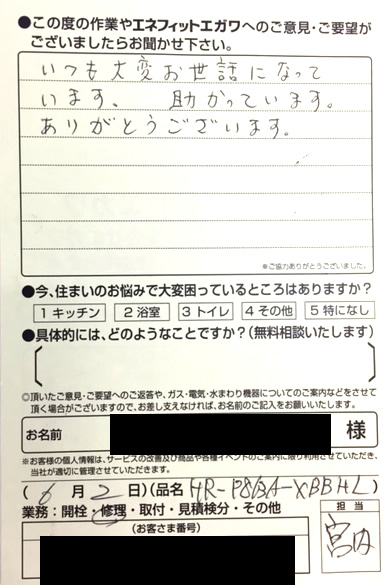 ●この度の作業やエネフィットエガワへのご意見・ご要望が
ございましたらお聞かせ下さい。
いつも大変お世話になって
います、 助かっています。
ありがとうございます。
※ご協力ありがとうございました。
●今、住まいのお悩みで大変困っているところはありますか？
1 キッチン 2 浴室 3 トイレ 4 その他 5 特になし
●具体的には、どのようなことですか？(無料相談いたします)
◎頂いたご意見・ご要望へのご返答や、ガス・電気・水まわり機器についてのご案内などをさせて
頂く場合がございますので、お差し支えなければ、お名前のご記入をお願いいたします。
お名前 様
※お客様の個人情報は、サービスの改善及び商品や各種イベントのご案内に限り利用させていただき、
当社が適切に管理させていただきます。
(6月2日)(品名 HR-P8
業務：開栓・修理・取付・見積検分・その他
(お客さま番号)
担当
宮内